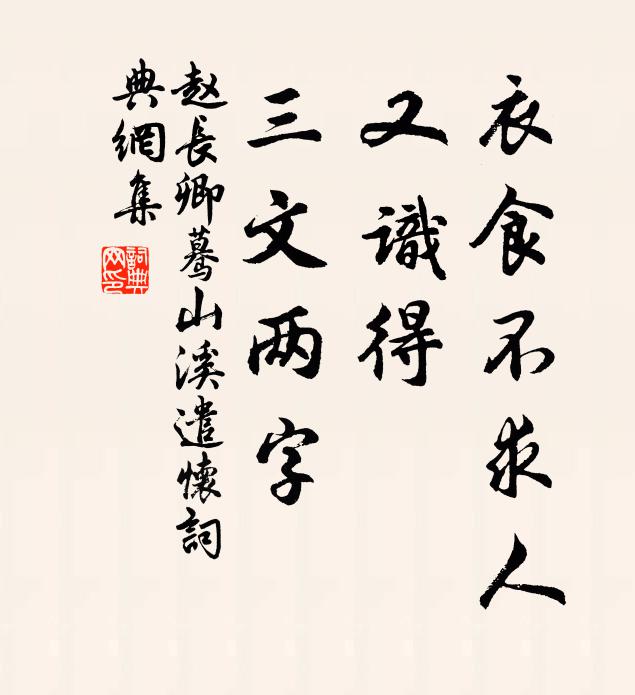 衣食不求人
又識得
三文两字
赵長卿驀山溪遣懷詞
典網集
詞典网印